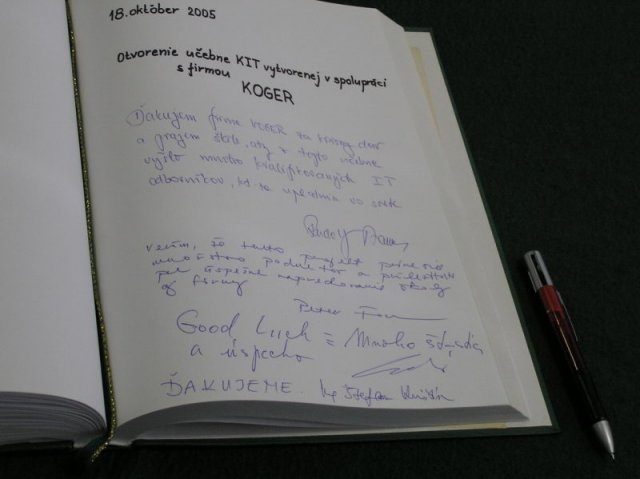 18. október 2005
Otvorenie učebne KIT vytvorenej v spolupráci
s firmou
KOGER
Ďakujem firme KOGER za krásny dar
a prajem škole, aby z tejto učebne
vyšlo mnoho kvalifikovaných IT
odborníkov, kt. sa uplatnia vo svete
Verím, že tento projekt prinesie
množstvo a
pre úspešné napredovanie školy
aj firmy
Peter
Good Luck = Mnoho šťastia
a úspechov
ĎAKUJEME. Štefan